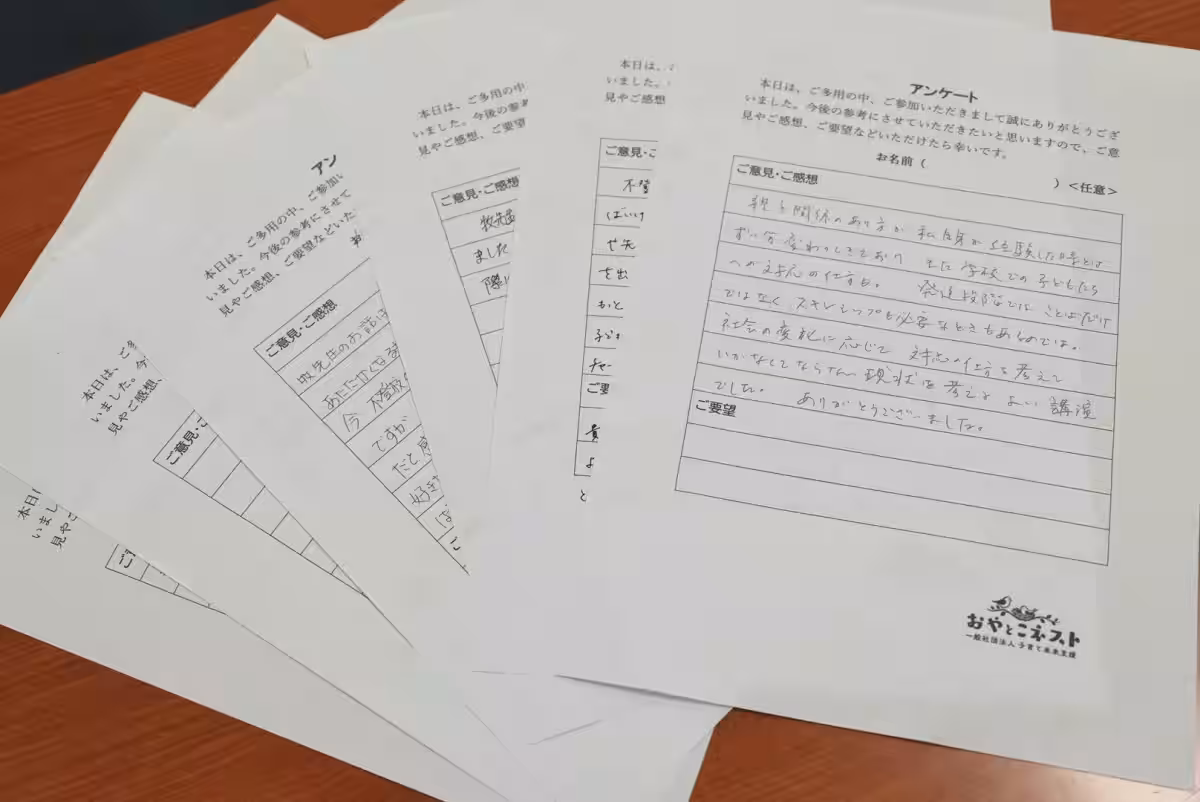 アンケート
本日は、ご多用の中、ご参加いただきまして誠にありがとうござ
いました。今後の参考にさせていただきたいと思いますので、ご意
見やご感想、ご要望などいただけたら幸いです。
お名前（ ）＜任意＞
ご意見・ご感想
親子関係のあり方が 私自身が経験した時とは
ずい分変わってきており 主に学校での子どもたち
への対応の仕方も。 発達段階では ことばだけ
ではなく、スキンシップも必要なときもあるのでは。
社会の変化に応じて 対応の仕方を考えて
いかなくてならない現状を考えると よい講演
でした。 ありがとうございました。
ご要望
おやとこネスト
一般社団法人 子育て未来支援
本日は、
いました。
見やご感想
ご意見・ご
ばいけ
や先
を出
かと
ご要
よ
と
本日は、ご多用の中、ご参
いました。今後の参考にさせ
見やご感想、ご要望などいた
ご意見・ご感想
牧先生
ました
際に
アン
本日は、ご多用の中、ご参加い
いました。今後の参考にさせて
見やご感想、ご要望などいた
ご意見・ご感想
牧先生のお話は
あたたかくなる
今 不登校
ですが
だと感
好き
本日は、ご多
いました。今
見やご感想、
ご意見・ご
本日は
いまし
見やご
ご